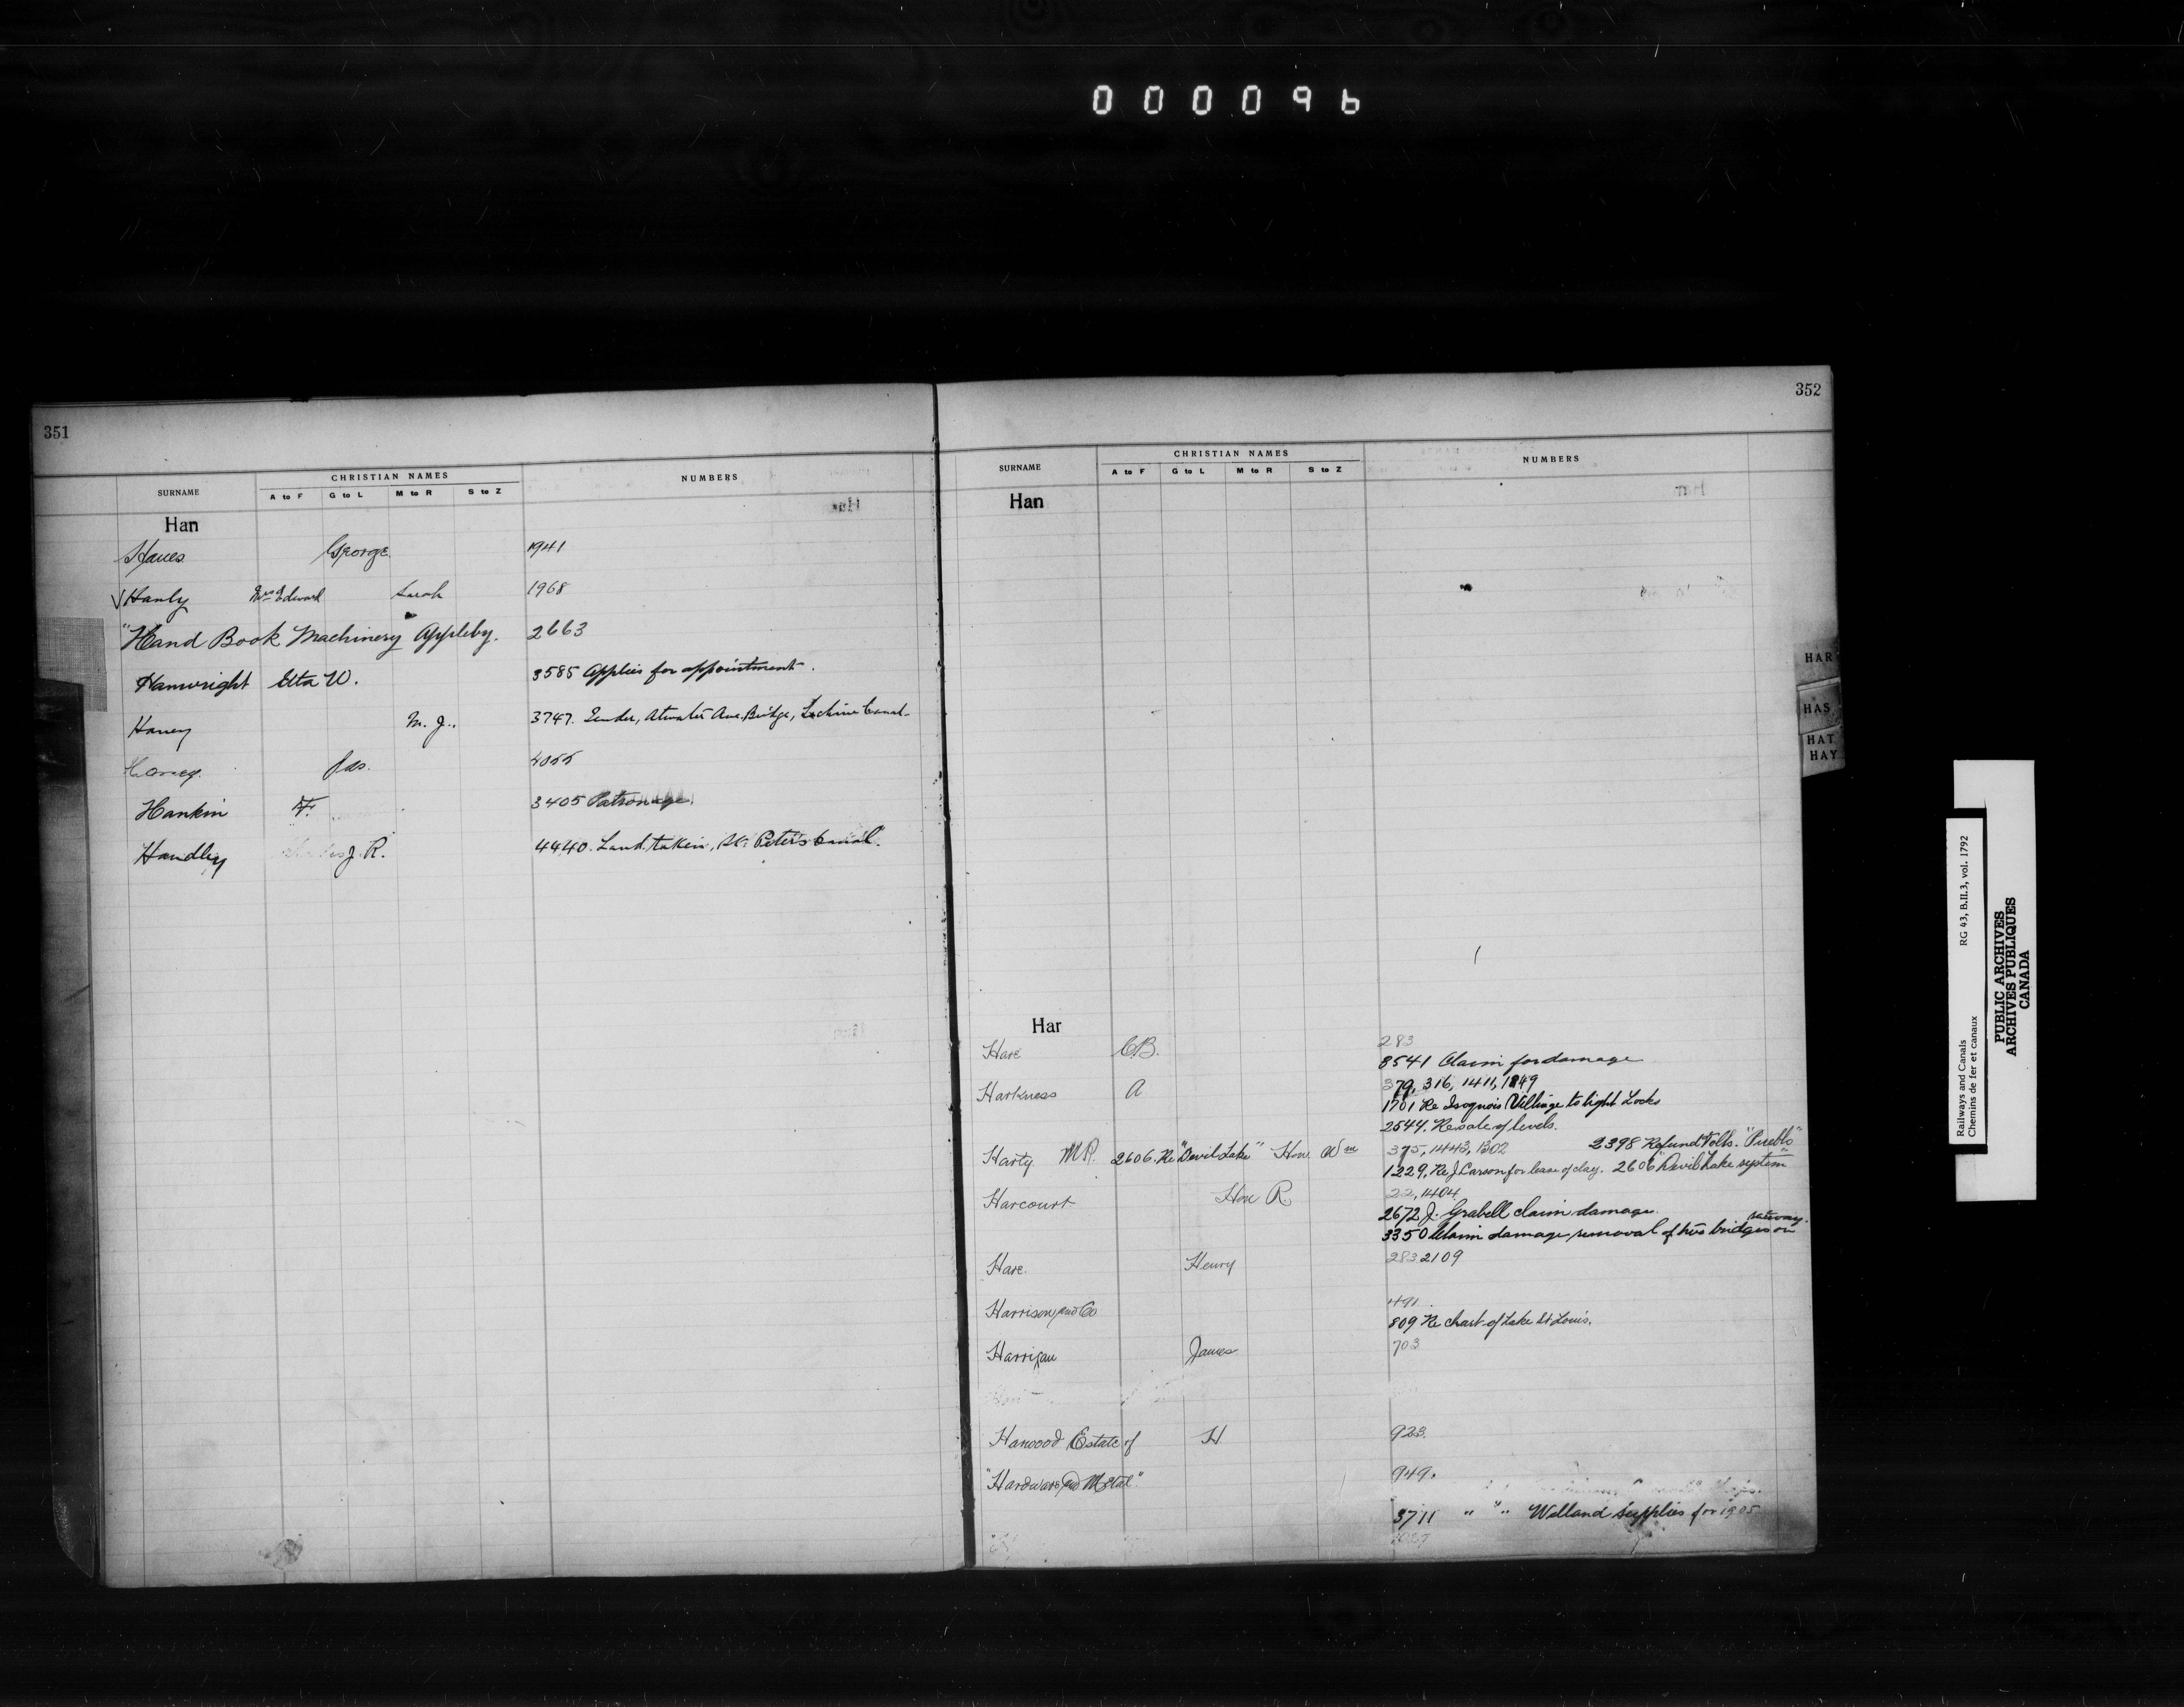 000096
351
SURNAME CHRISTIAN NAMES NUMBERS
A to F G to L M to R S to Z
Han
Hanes George 1941
Hanly Mrs Edward Sarah 1968
"Hand Book Machinery Appleby. 2663
Hanwright Etta W. 3585 Applies for appointment.
Haney M. J. 3747. Tender, Atwater Ave. Bridge, Lachine Canal
Haney Jas. 4055
Hankin F. 3405 Patronage.
Handley J. R. 4440. Land taken, St. Peter's Canal.
352
SURNAME CHRISTIAN NAMES NUMBERS
A to F G to L M to R S to Z
Han
Har
Hare C.B. 283
8541 Claim for damage
Harkness A 379, 316, 1411, 1849
1701 Re Iroquois Village to light Locks
2544. Resale of levels.
Harty M.P. 2606. Re "Devil Lake" Hon. Wm 375, 1443, 1302 2398 Refund Tolls. "Pueblo"
1229. Re J Carson for lease of clay. 2606 "Devil Lake system"
Harcourt Hon R. 22, 1404
2672 J. Grabell claim damage.
3350 Claim damage removal of two bridges on
Hare Henry 283 2109
Harrison and Co 491
809 Re chart of Lake St Louis.
Harrigan James 703
Harwood Estate of H 923
"Hardware and Metal" 949.
3711 " " " Welland supplies for 1905
HAR
HAS
HAT
HAY
Railways and Canals RG 43, B.II.3, vol. 1792
Chemins de fer et canaux
PUBLIC ARCHIVES
ARCHIVES PUBLIQUES
CANADA